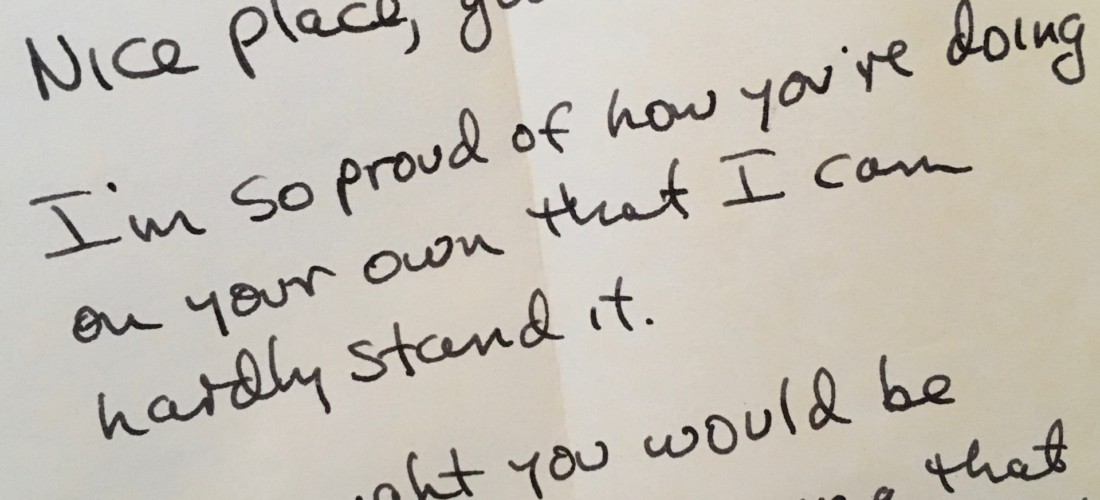 Nice place,
I'm so proud of how you're doing
on your own that I can
hardly stand it.
you would be
that